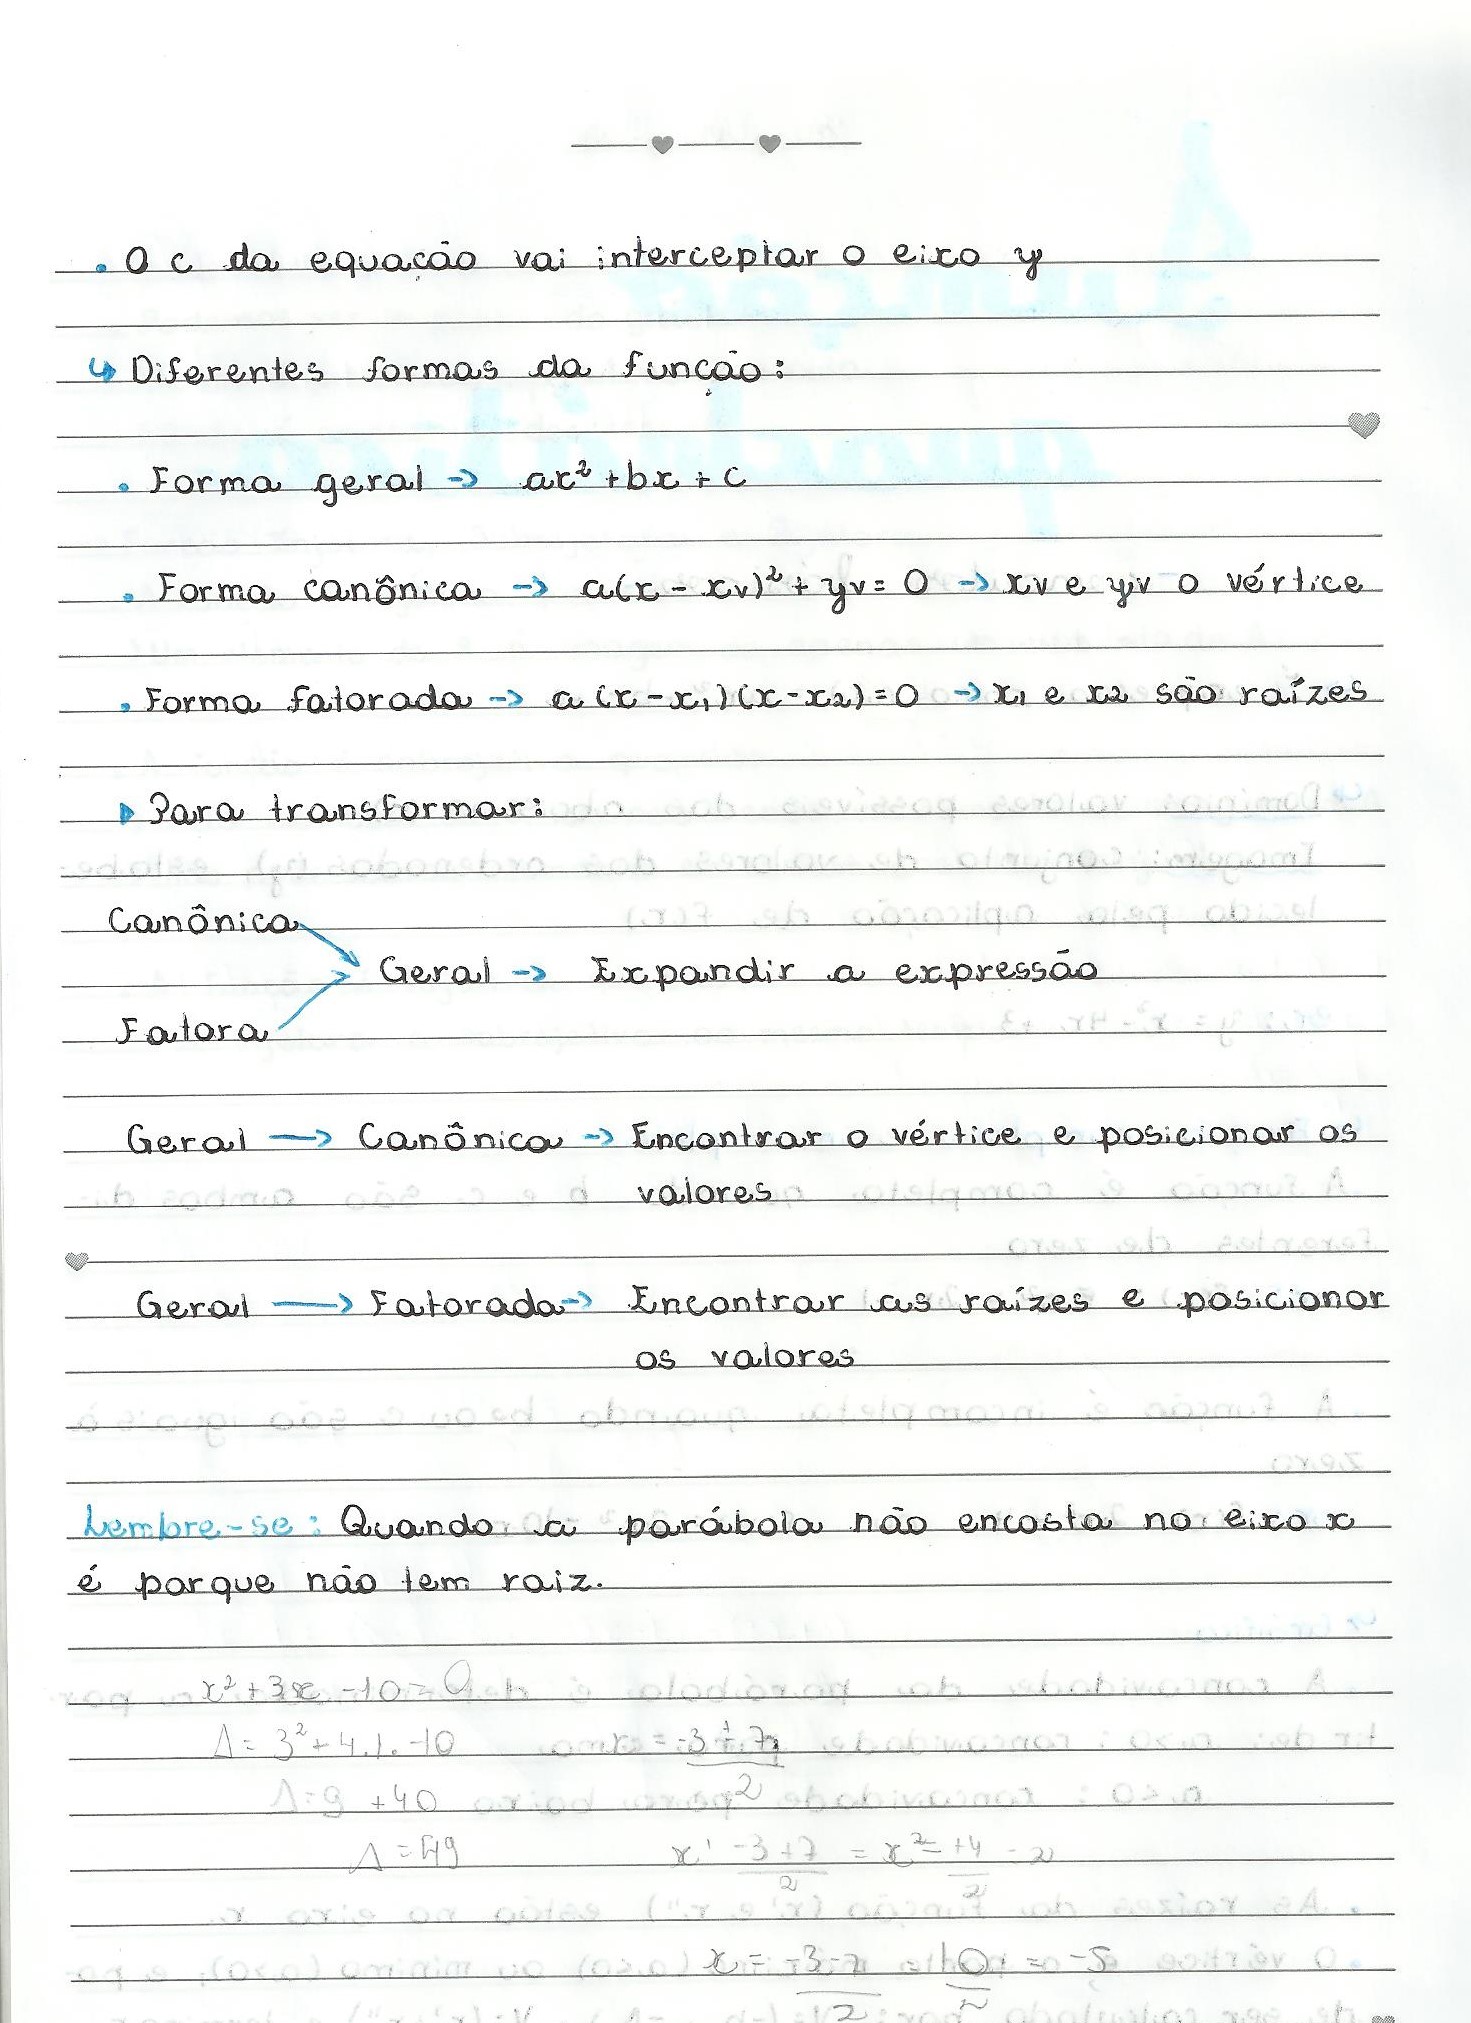 . O c da equação vai interceptar o eixo y
↳ Diferentes formas da função:
. Forma geral -> ax² + bx + c
. Forma canônica -> a(x - xv)² + yv = 0 -> xv e yv o vértice
. Forma fatorada -> a (x - x₁) (x - x₂) = 0 -> x₁ e x₂ são raízes
▶ Para transformar:
Canônica
Geral -> Expandir a expressão
Fatora
Geral -> Canônica -> Encontrar o vértice e posicionar os
valores
Geral -> Fatorada -> Encontrar as raízes e posicionar
os valores
Lembre-se: Quando a parábola não encosta no eixo x
é porque não tem raiz.
x² + 3x - 10 = 0
Δ = 3² + 4.1.-10 x = -3 ± 7
2
Δ = 9 + 40
Δ = 49 x' -3+7 = x² = +4 = 2
2 2
x = -3-7 10 = -5
2 2